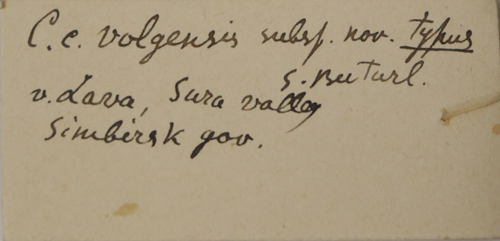 C. c. volgensis subsp. nov. typus
S. Buturl.
v. Lava, Sura valley
Simbirsk gov.